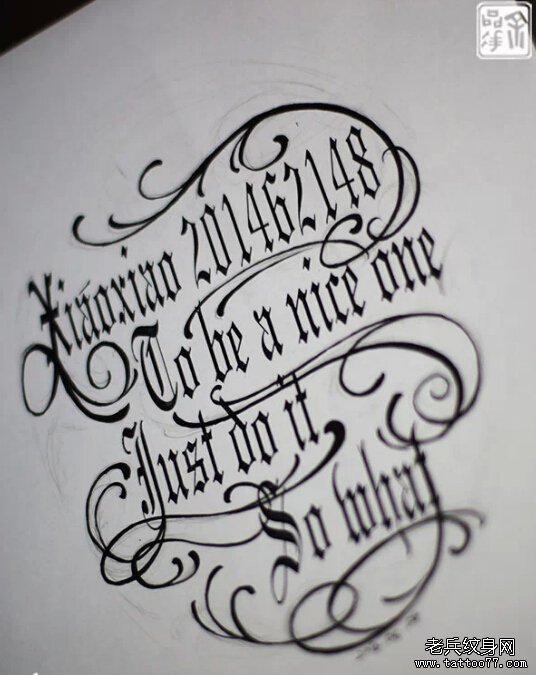 Xiaoxiao 201462148
To be a nice one
Just do it
So what
老兵纹身网
www.tattoo77.com